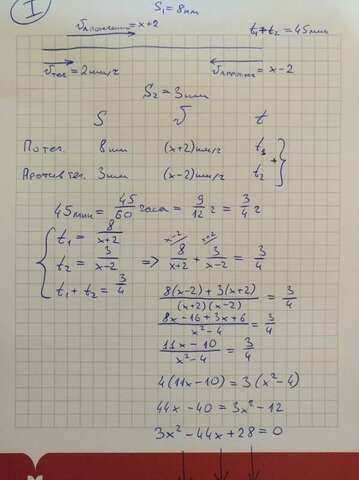 I
S₁ = 8км
vпо течению = x+2
t₁+t₂ = 45мин
vтеч = 2км/ч
vпротив = x-2
S₂ = 3км
S v t
По теч. 8км (x+2)км/ч t₁
Против теч. 3км (x-2)км/ч t₂ +
45мин = 45/60 часа = 9/12 ч = 3/4 ч
t₁ = 8/(x+2)
t₂ = 3/(x-2) => 8/(x+2) + 3/(x-2) = 3/4
t₁ + t₂ = 3/4
(8(x-2)+3(x+2))/((x+2)(x-2)) = 3/4
(8x-16+3x+6)/(x²-4) = 3/4
(11x-10)/(x²-4) = 3/4
4(11x-10) = 3(x²-4)
44x-40 = 3x²-12
3x²-44x+28 = 0